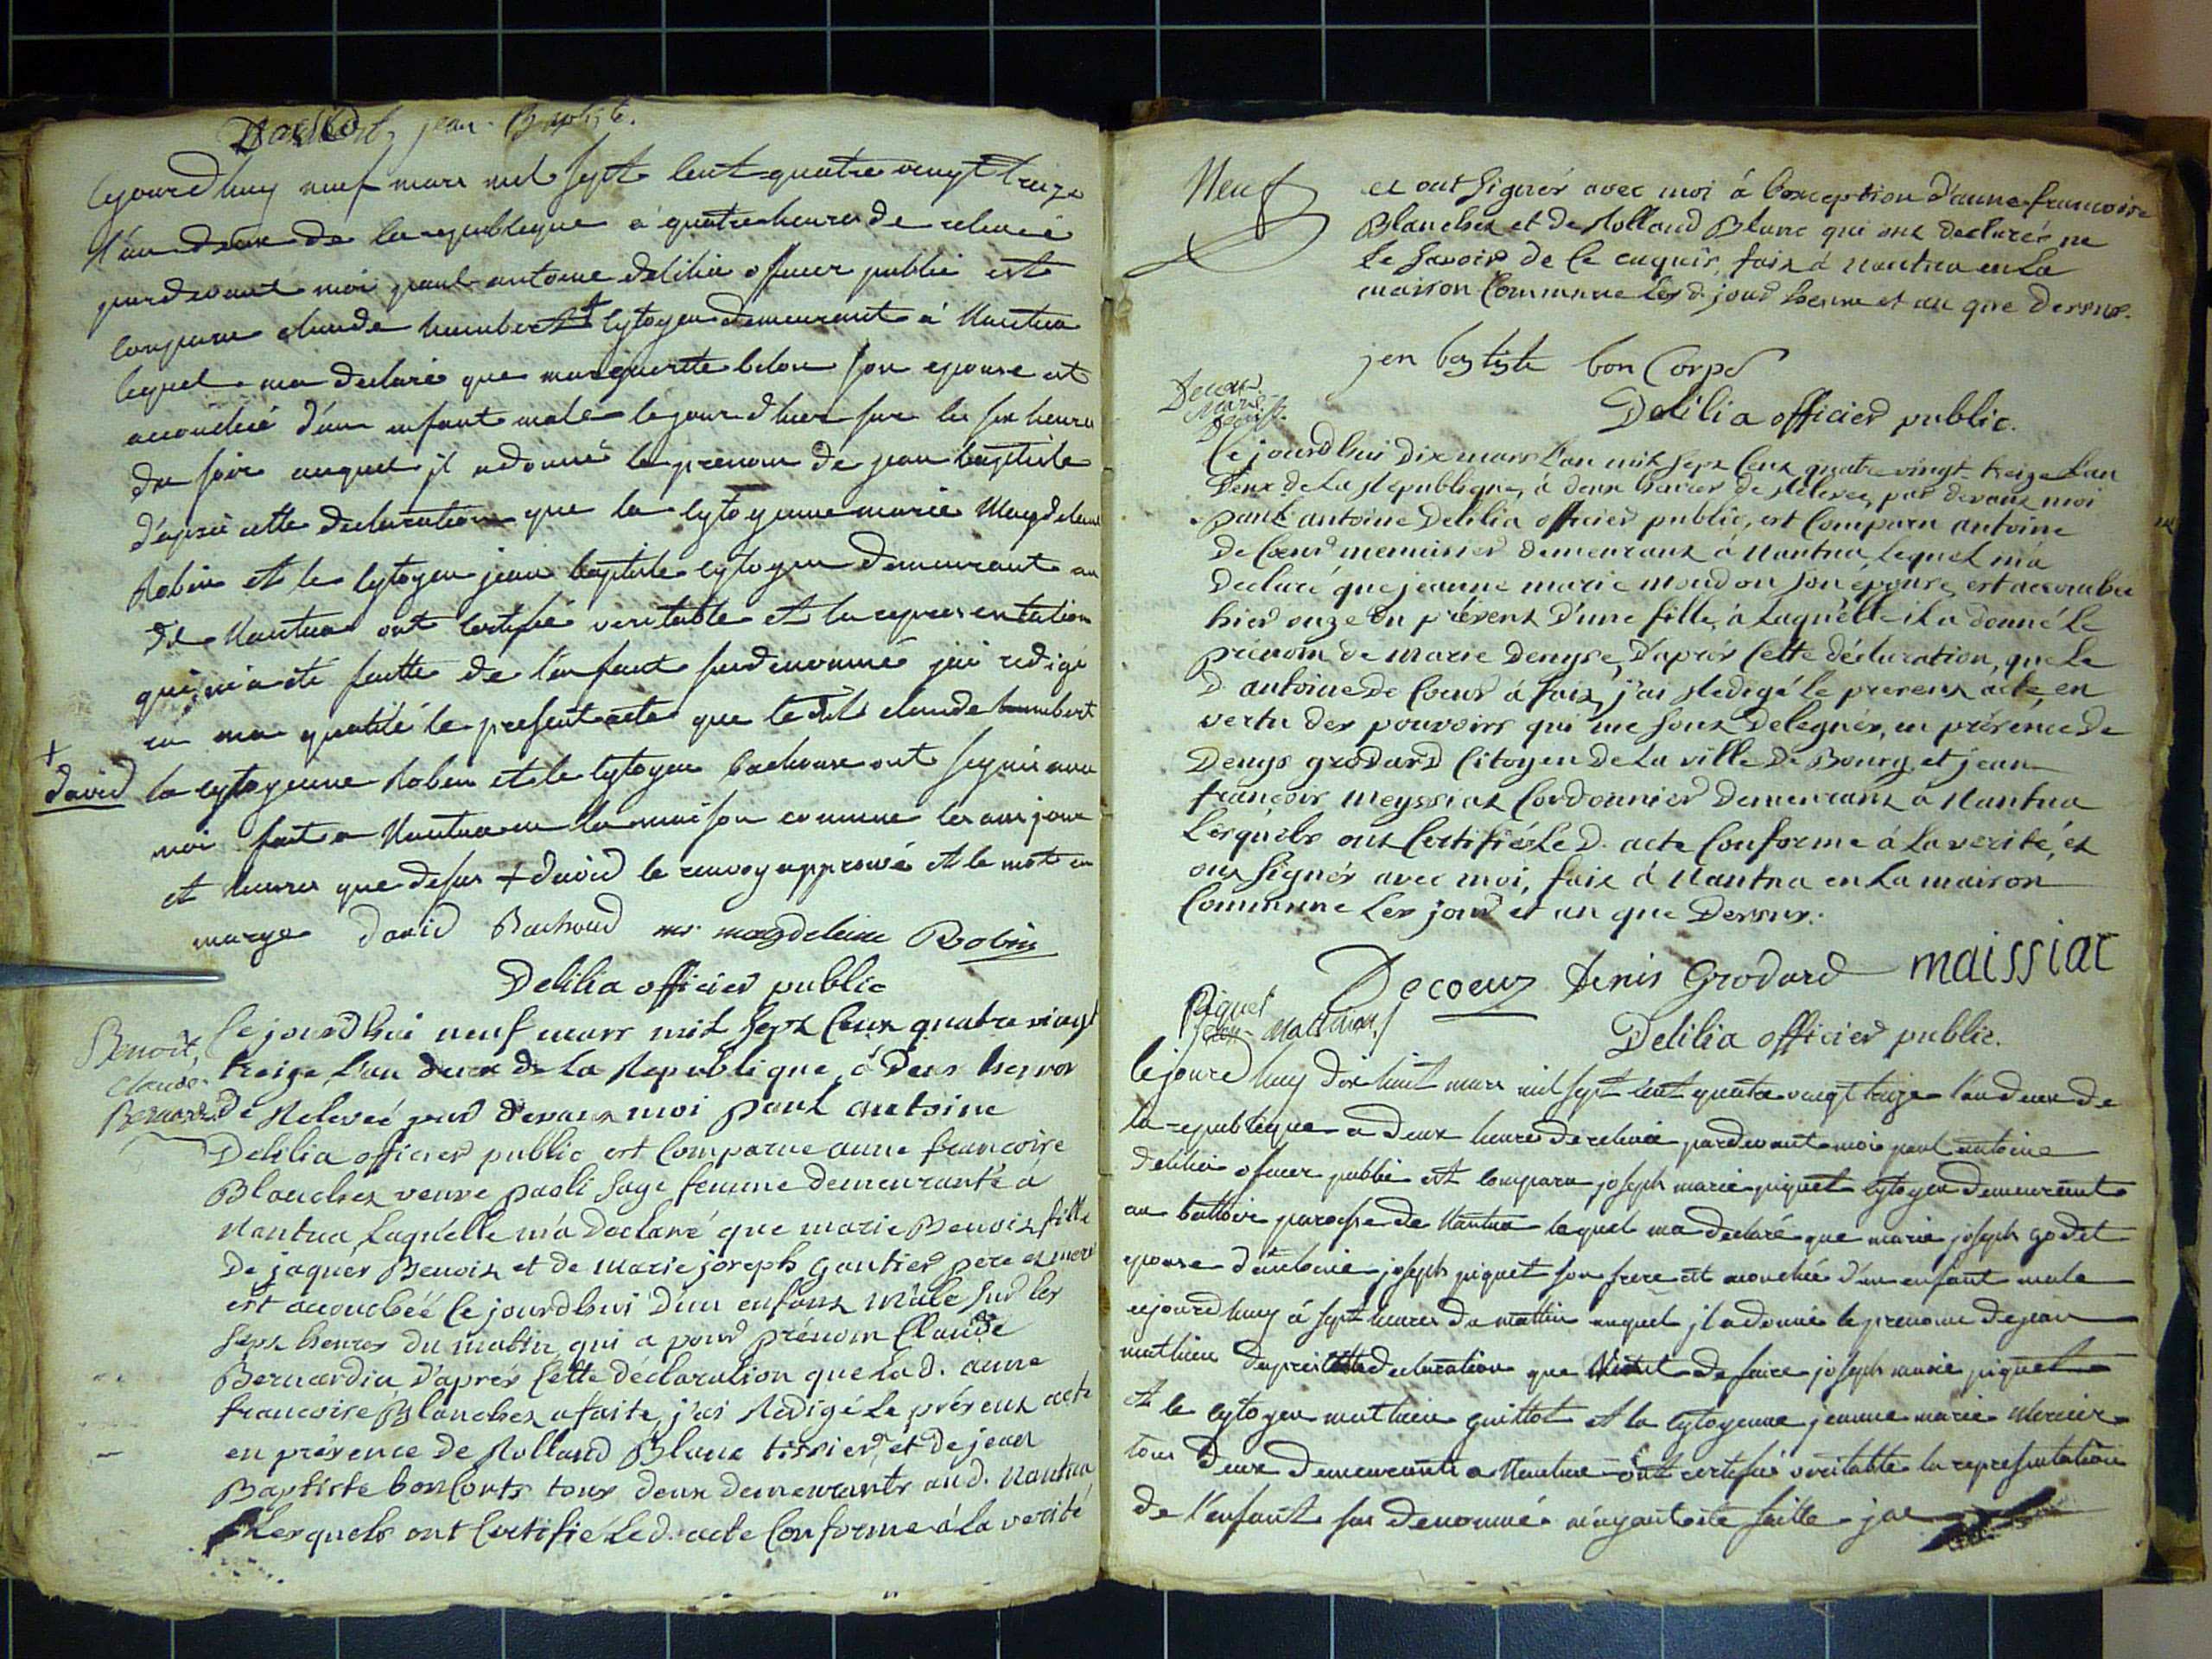 jean-Baptiste.
Cejourdhuy neuf mars mil sept cent quatre vingt treize
l'an deux de la republique a quatre heures de relevée
pardevant moi paul antoine delilia officier public est
comparu claude humbert + cytoyen demeurant à Nantua
lequel ma declaré que margueritte belon son epouse est
accouchée d'un enfant male le jour d'hier sur les six heures
du soir auquel il adonné le prenom de jean baptiste
d'après cette declaration que la cytoyenne marie Magdelene
Robin et le cytoyen jean baptiste cytoyen demeurant au
dt Nantua ont certifié veritable et la representation
qui m'a été faitte de l'enfant susdenommé j'ai redigé
en ma qualité le present acte que le dit claude humbert
+
david
la cytoyenne Robin et le cytoyen bachoux ont signé avec
moi fait a Nantua en la maison commune les an jour
et heures que desus + david le renvoy approuvé et le mot en
marge david Bachoud me magdeleine Robin
Delilia officier public
Benoit,
Claude-
Bernard
Ce jourd'hui neuf mars mil sept cent quatre vingt
treize, l'an deux de la Republique, à deux heures
de Relevée par devant moi paul antoine
Delilia officier public est Comparue anne francoise
Blanchet veuve paoli sage femme demeurante à
Nantua, Laquelle m'a declaré que marie Benoit fille
de jaques Benoit et de marie joseph gautier pere et mere
est accouchée Ce jourd'hui d'un enfant mâle sur les
sept heures du matin, qui a pour prénom Claude
Bernardin d'après Cette déclaration que la d. anne
francoise Blanchet a faite, j'ai Redigé le présent acte
en présence de Rolland Blanc tissier, et de jean
Baptiste bonCorts tous deux demeurants aud. Nantua
Lesquels ont Certifié Led. acte Conforme à la verité
Neuf
et ont signés avec moi à l'exception d'anne francoise
Blanchet et de Rolland Blanc qui ont declarés ne
le savoir de Ce enquis, fait à Nantua en la
maison Commune Les d. jour heure et an que dessus.
jen batiste bon Corps
Delilia officier public.
Decoeur
Marie
Denise
Ce jourd'hui Dix mars L'an mil sept Cent quatre vingt-treize L'an
Deux de La Republique, à deux heures de Relevée, par devant moi
paul antoine Delilia officier public, est Comparu antoine
De Coeur menuisier demeurant à Nantua, Lequel m'a
Declaré que jeanne marie moudon son épouse, est accouchée
hier onze du présent D'une fille, à Laquelle il a donné Le
prénom de Marie Denyse, D'après Cette déclaration, que Le
D. antoine de Coeur à fait, j'ai Redigé Le present acte, en
vertu des pouvoirs qui me sont Delegués, en présence de
Denys grodard Citoyen de La ville De Bourg, et jean
françois meyssiat Cordonnier Demeurant à Nantua
Lesquels ont Certifié Le D. acte Conforme à La verité, et
ont signés avec moi, fait à Nantua en La maison
Commune Les jour et an que Dessus.
Decoeur denis Grodard maissiat
Delilia officier public.
Piquet
jean-mathieu
Cejourdhuy dix huit mars mil sept cent quatre vingt treize l'an deux de
la republique a deux heures de relevée pardevant moi paul antoine
delilia officier public est comparu joseph marie piquet cytoyen demeurant
au battoir paroisse de Nantua lequel ma declaré que marie joseph godet
epouse d'antoine joseph piquet son frere est accouchée d'un enfant male
cejourdhuy à sept heures du mattin auquel il a donné le prenom de jean
mathieu d'après cette declaration que vient de faire joseph marie piquet
et le cytoyen mathieu guittot et la cytoyenne jeanne marie Mercier
tous deux demeurants a Nantua ont certifié veritable la representation
de l'enfant sus denommé m'ayant été faitte jae